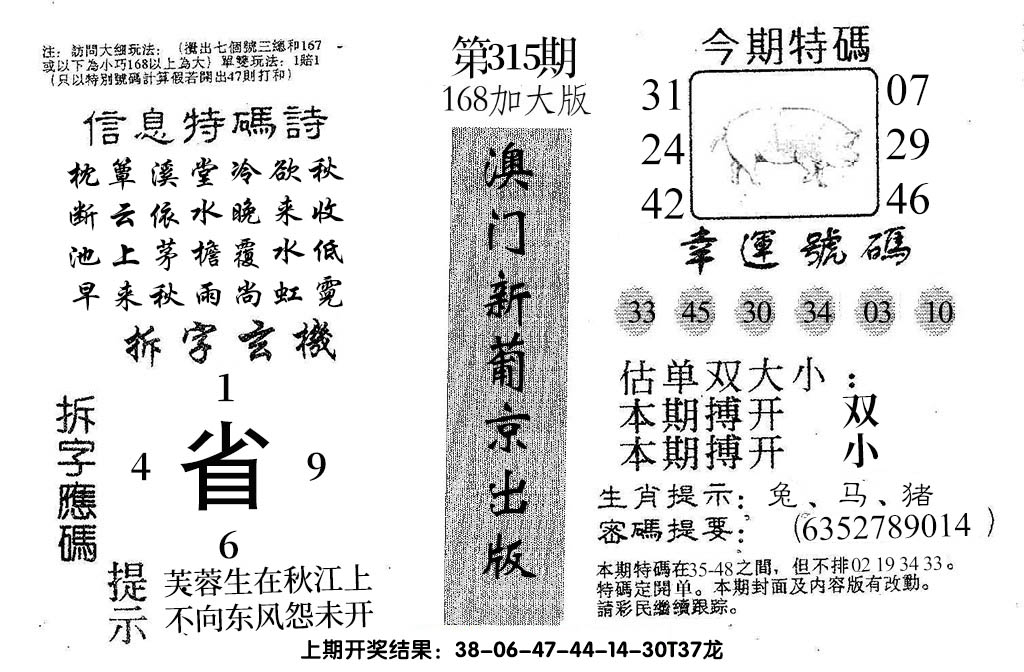 注：訪問大细玩法：（攪出七個號三總和167
或以下為小巧168以上為大）單雙玩法：1賠1
（只以特別號碼計算假若開出47則打和）
信息特碼詩
枕簟溪堂冷欲秋
断云依水晚来收
池上茅檐覆水低
早来秋雨尚虹霓
拆字玄機
拆字應碼
1
4 省 9
6
提示
芙蓉生在秋江上
不向东风怨未开
第315期
168加大版
澳门新葡京出版
今期特碼
31 07
24 29
42 46
幸運號碼
33 45 30 34 03 10
估单双大小：
本期搏开 双
本期搏开 小
生肖提示：兔、马、猪
密碼提要：（6352789014）
本期特碼在35-48之間，但不排02 19 34 33。
特碼定開单。本期封面及内容版有改動。
請彩民繼續跟踪。
上期开奖结果：38-06-47-44-14-30T37龙